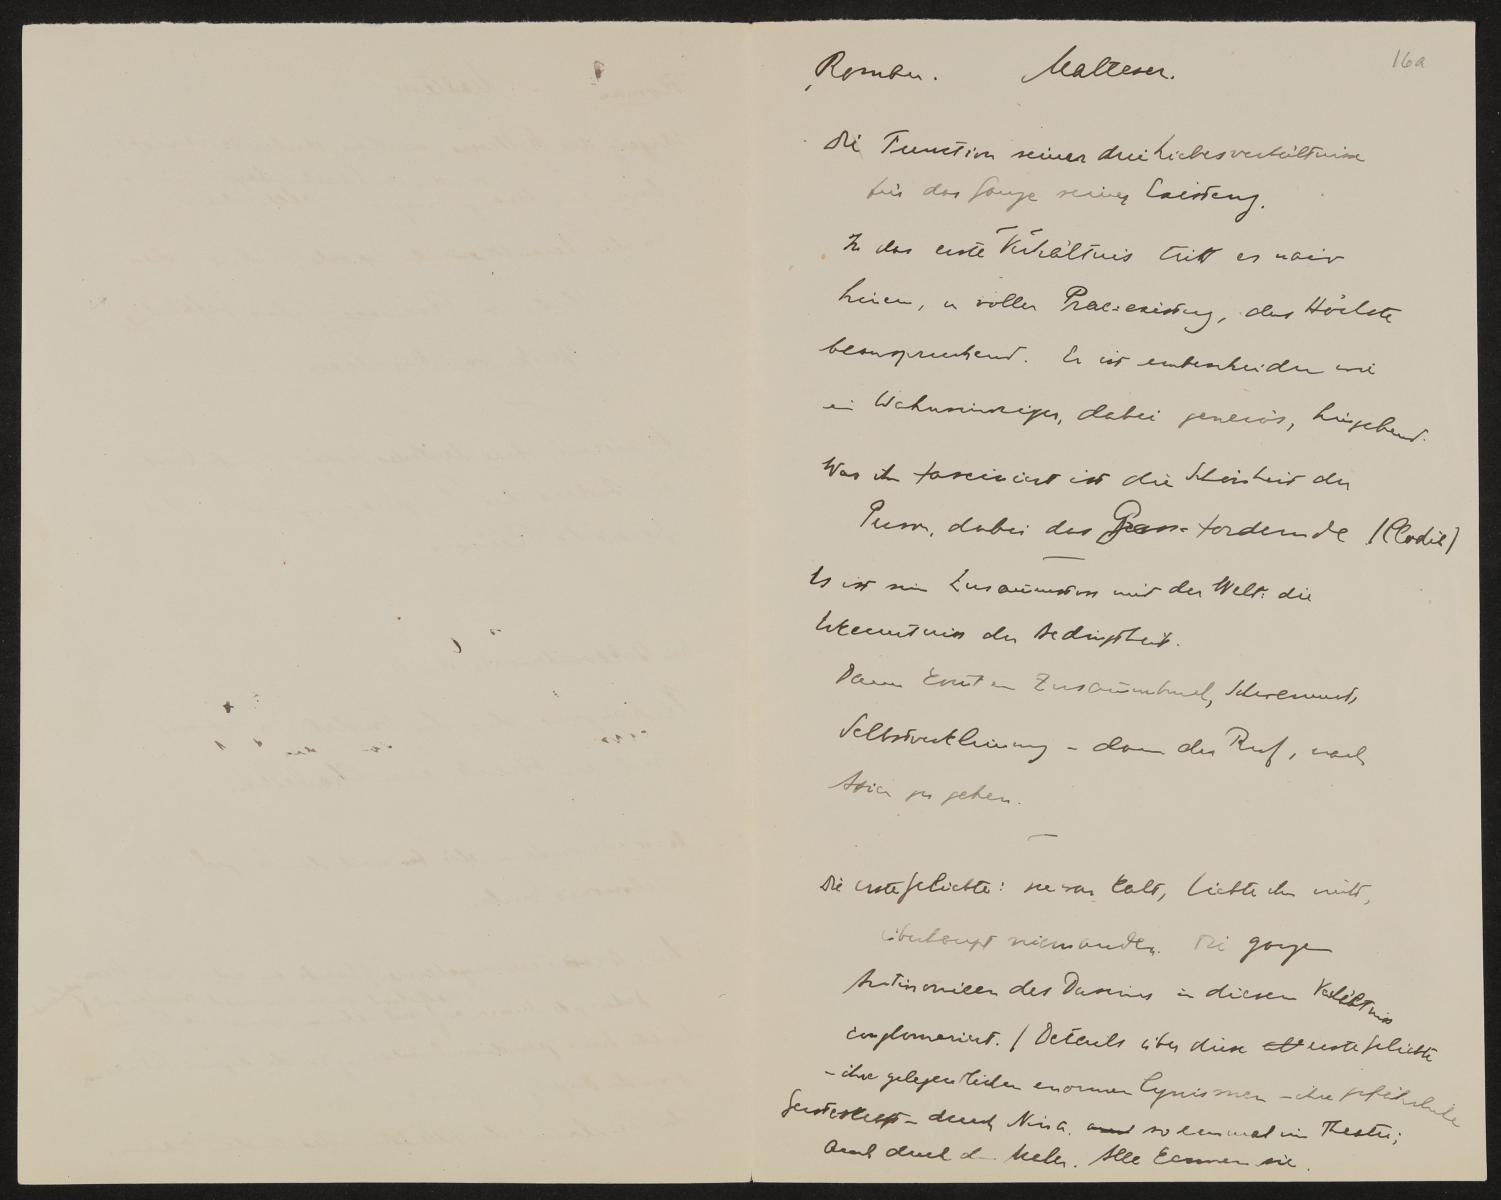 Roman. Malteser. 16a
Die Function seiner drei Liebesverhältnisse
für das Ganze seiner Existenz.
In das erste Verhältnis tritt er naiv
hinein, in voller Prae-existenz, das Höchste
beanspruchend. Er ist unbescheiden wie
ein Wahnsinniger, dabei generös, hingebend.
Was ihn fasciniert ist die Schönheit der
Person, dabei das fordernde (Clodie)
Es ist sein Zusammenstoss mit der Welt: die
Erkenntniss der Bedingtheit.
Dann kommt ein Zusammenbruch, Schwermuth,
Selbstverkleinerung – dann der Ruf, nach
Asien zu gehen.
Die erste Geliebte: sie war kalt, liebte ihn nicht,
überhaupt niemanden. Die ganzen
Antinomieen des Daseins in diesem Verhältniss
conglomeriert. / Details über diese erste Geliebte
– ihre gelegentlichen enormen Cynismen – ihre gefährliche
Geisteskraft – durch Nina. so einmal im Theater;
Auch durch den Maler. Alle kannten sie.